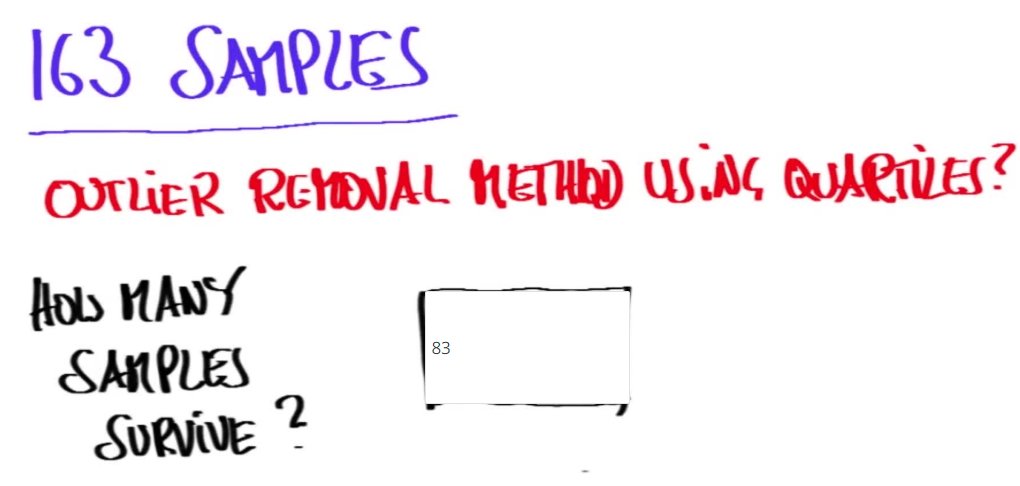 163 SAMPLES
OUTLiER REMOVAL METHOD USiNG QUARTiLES?
HOW MANY
SAMPLES
SURViVE ?
83